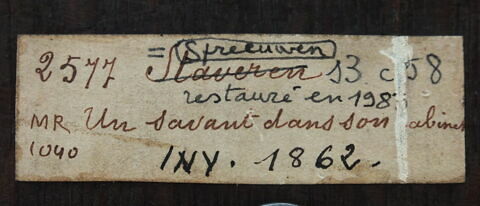 = Spreeuwen
2577 Staveren 53 c 58
restauré en 198
MR Un savant dans son cabinet
1040 INV. 1862.